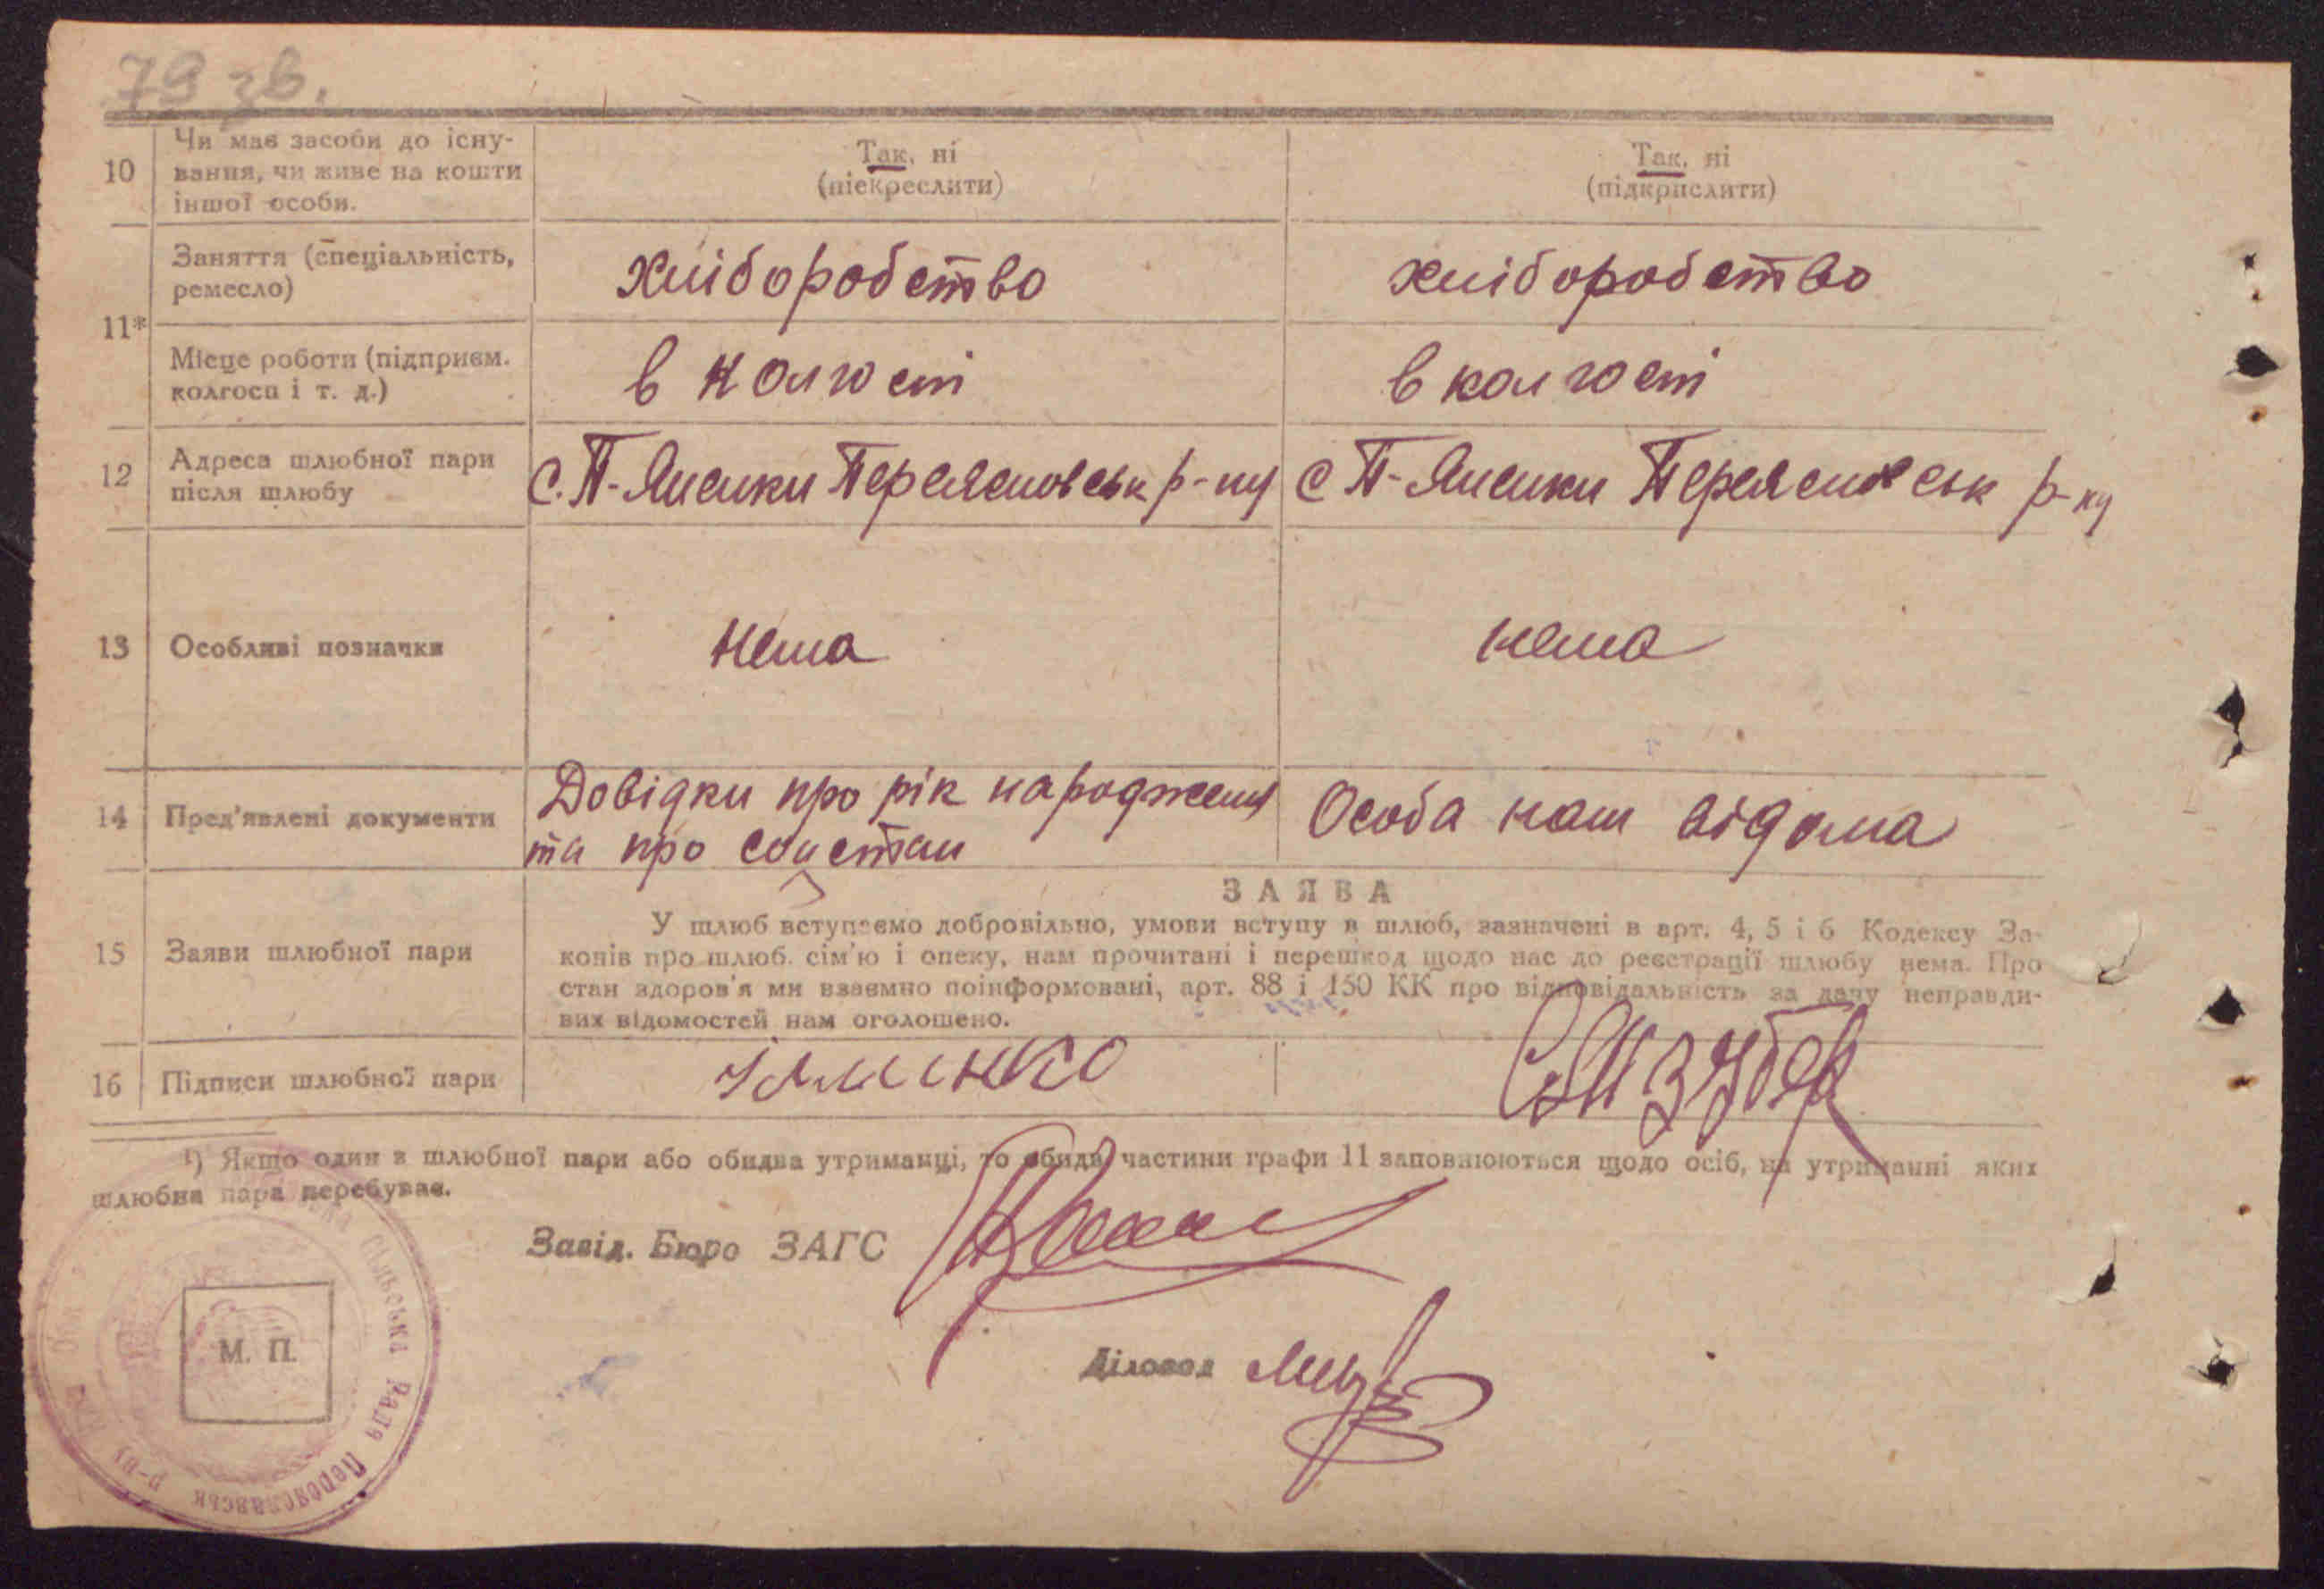 79 зв.
10
Чи має засоби до існу-
вання, чи живе на кошти
іншої особи.
Так, ні
(піекреслити)
Так, ні
(підкрислити)
11*
Заняття (спеціальність,
ремесло)
Хліборобство
хліборобство
Місце роботи (підприєм.
колгосп і т. д.)
в колгосі
в колгосі
12
Адреса шлюбної пари
після шлюбу
С. П- Яненки р-ну
С П- Яненки р-ну
13
Особливі позначки
Нема
нема
14
Пред'явлені документи
Довідки про рік народження
та про соцстан
Особа нам відома
15
Заяви шлюбної пари
ЗАЯВА
У шлюб вступаємо добровільно, умови вступу в шлюб, зазначені в арт. 4, 5 і 6 Кодексу За-
конів про шлюб. сім'ю і опеку, нам прочитані і перешкод щодо нас до реєстрації шлюбу нема. Про
стан здоров'я ми взаємно поінформовані, арт. 88 і 150 КК про відповідальність за дачу неправди-
вих відомостей нам оголошено.
16
Підписи шлюбної пари
¹) Якщо один з шлюбної пари або обидва утриманці, то обидві частини графи 11 заповнюються щодо осіб, на утриманні яких
шлюбна пара перебуває.
Завід. Бюро ЗАГС
М. П.
Діловод
сільська Рада Переяславськ р-ну